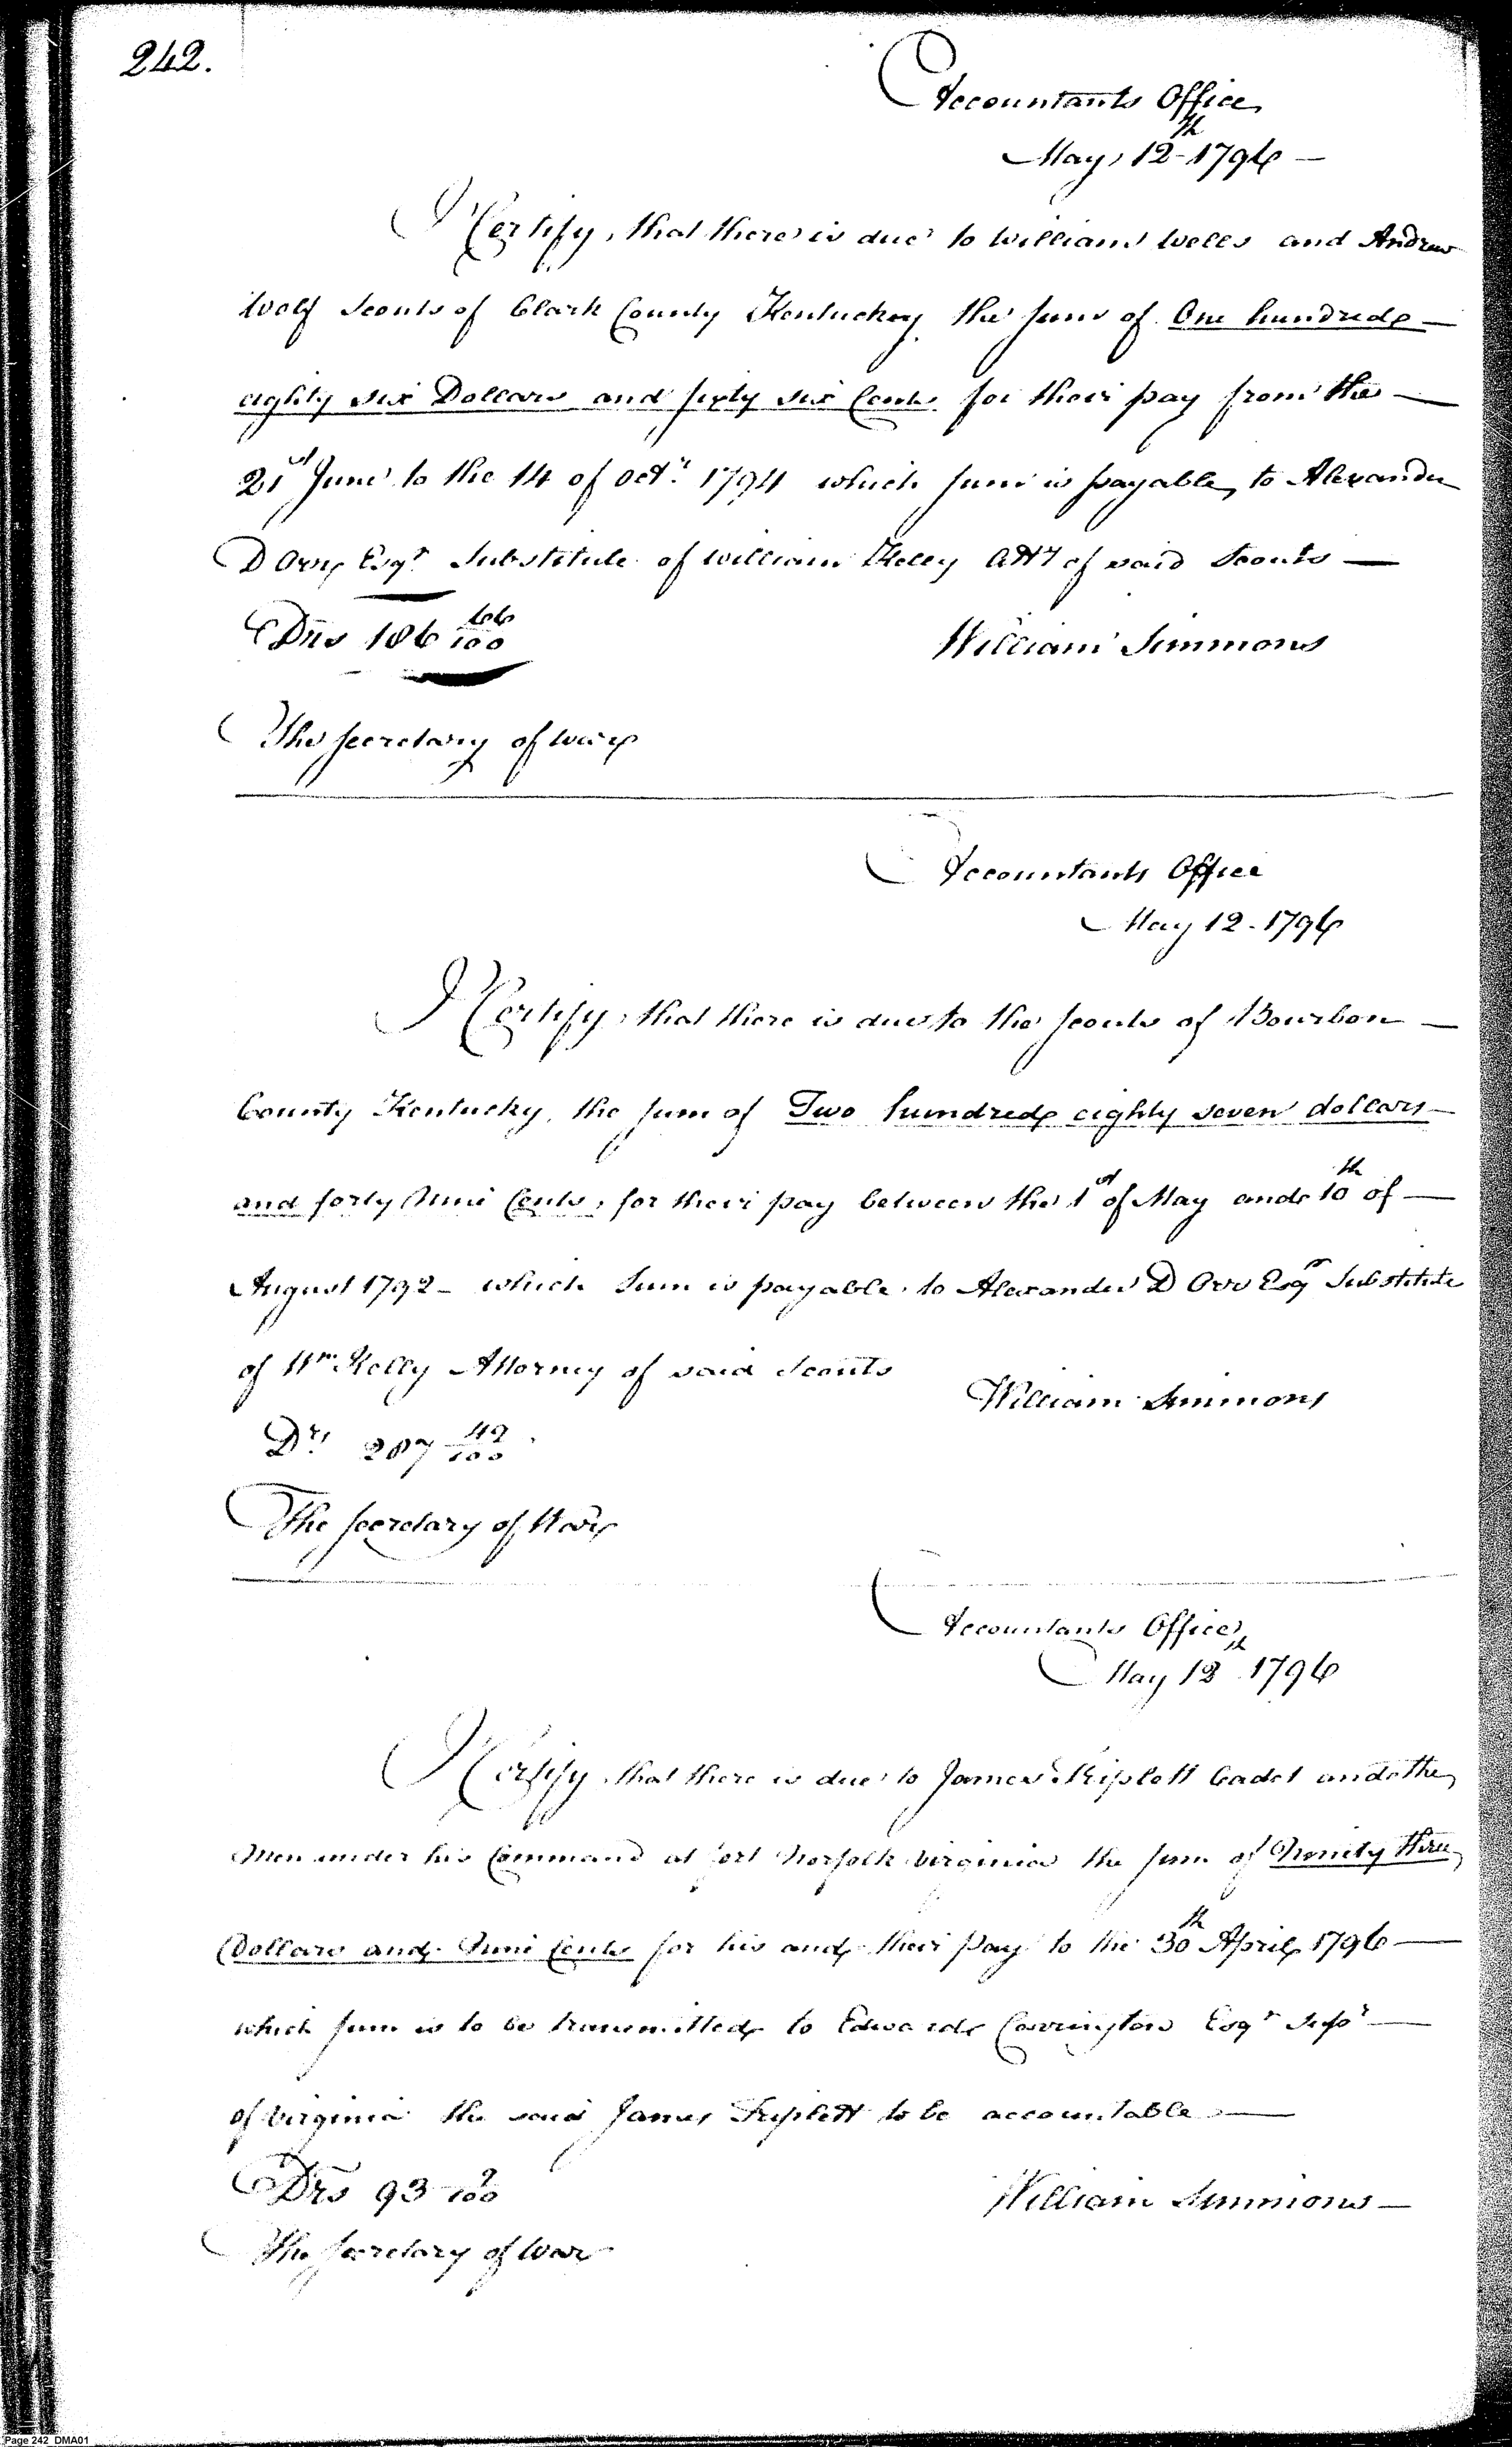 242.
Accountants Office
May 12th 1796 —
I Certify, that there is due to William Wells and Andrew
Wolf Scouts of Clark County Kentuckey the sum of One hundred —
eighty six Dollars and sixty six Cents for their pay from the —
21st June to the 14 of Octr. 1794 which sum is payable, to Alexander
D Orr, Esqr Substitute of William Kelly Atty of said Scouts —
Drs 186 66/100
William Simmons
The Secretary of War
Accountants Office
May 12 - 1796
I Certify, that there is due to the scouts of Bourbon —
County Kentucky, the sum of Two hundred eighty seven dollars —
and forty Nine Cents, for their pay between the 1st of May and 10th of —
August 1792 - which Sum is payable to Alexander D Orr Esqr Substitute
of Wm Kelly Attorney of said Scouts
William Simmons
Drs 287 49/100
The Secretary of War
Accountants Office
May 12th 1796
I Certify, that there is due to James Triplett Cadet and the
Men under his Command at fort Norfolk Virginia the sum of Ninety three
Dollars and Nine Cents for his and their Pay to the 30th April 1796 —
which sum is to be transmitted to Edward Carrington Esqr Supr —
of Virginia the said James Triplett to be accountable —
Drs 93 9/100
William Simmons —
The Secretary of War
Page 242 DMA01